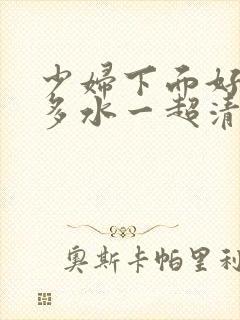 少婦下面好
多水一超清
奥斯卡帕里利